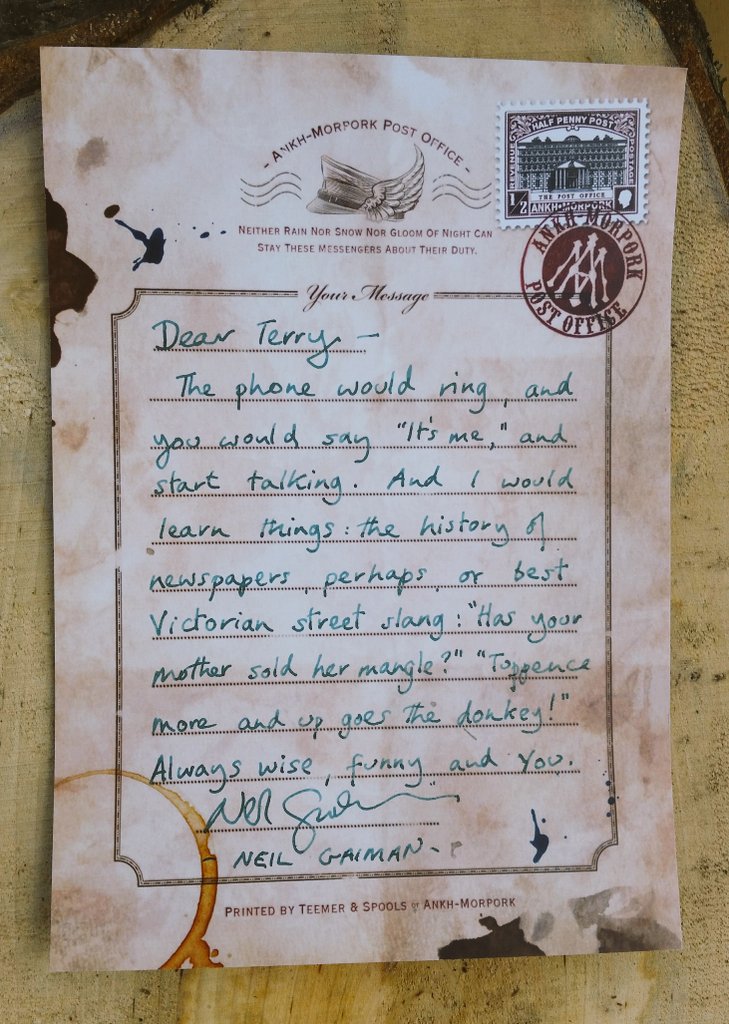 - ANKH-MORPORK POST OFFICE -
HALF PENNY POST
REVENUE
POSTAGE
1/2
THE POST OFFICE
ANKH-MORPORK
NEITHER RAIN NOR SNOW NOR GLOOM OF NIGHT CAN
STAY THESE MESSENGERS ABOUT THEIR DUTY.
ANKH-MORPORK
POST OFFICE
Your Message
Dear Terry —
The phone would ring, and
you would say "It's me," and
start talking. And I would
learn things: the history of
newspapers, perhaps, or best
Victorian street slang: "Has your
mother sold her mangle?" "Tuppence
more and up goes the donkey!"
Always wise, funny, and You.
Neil Gaiman
NEIL GAIMAN -
PRINTED BY TEEMER & SPOOLS OF ANKH-MORPORK